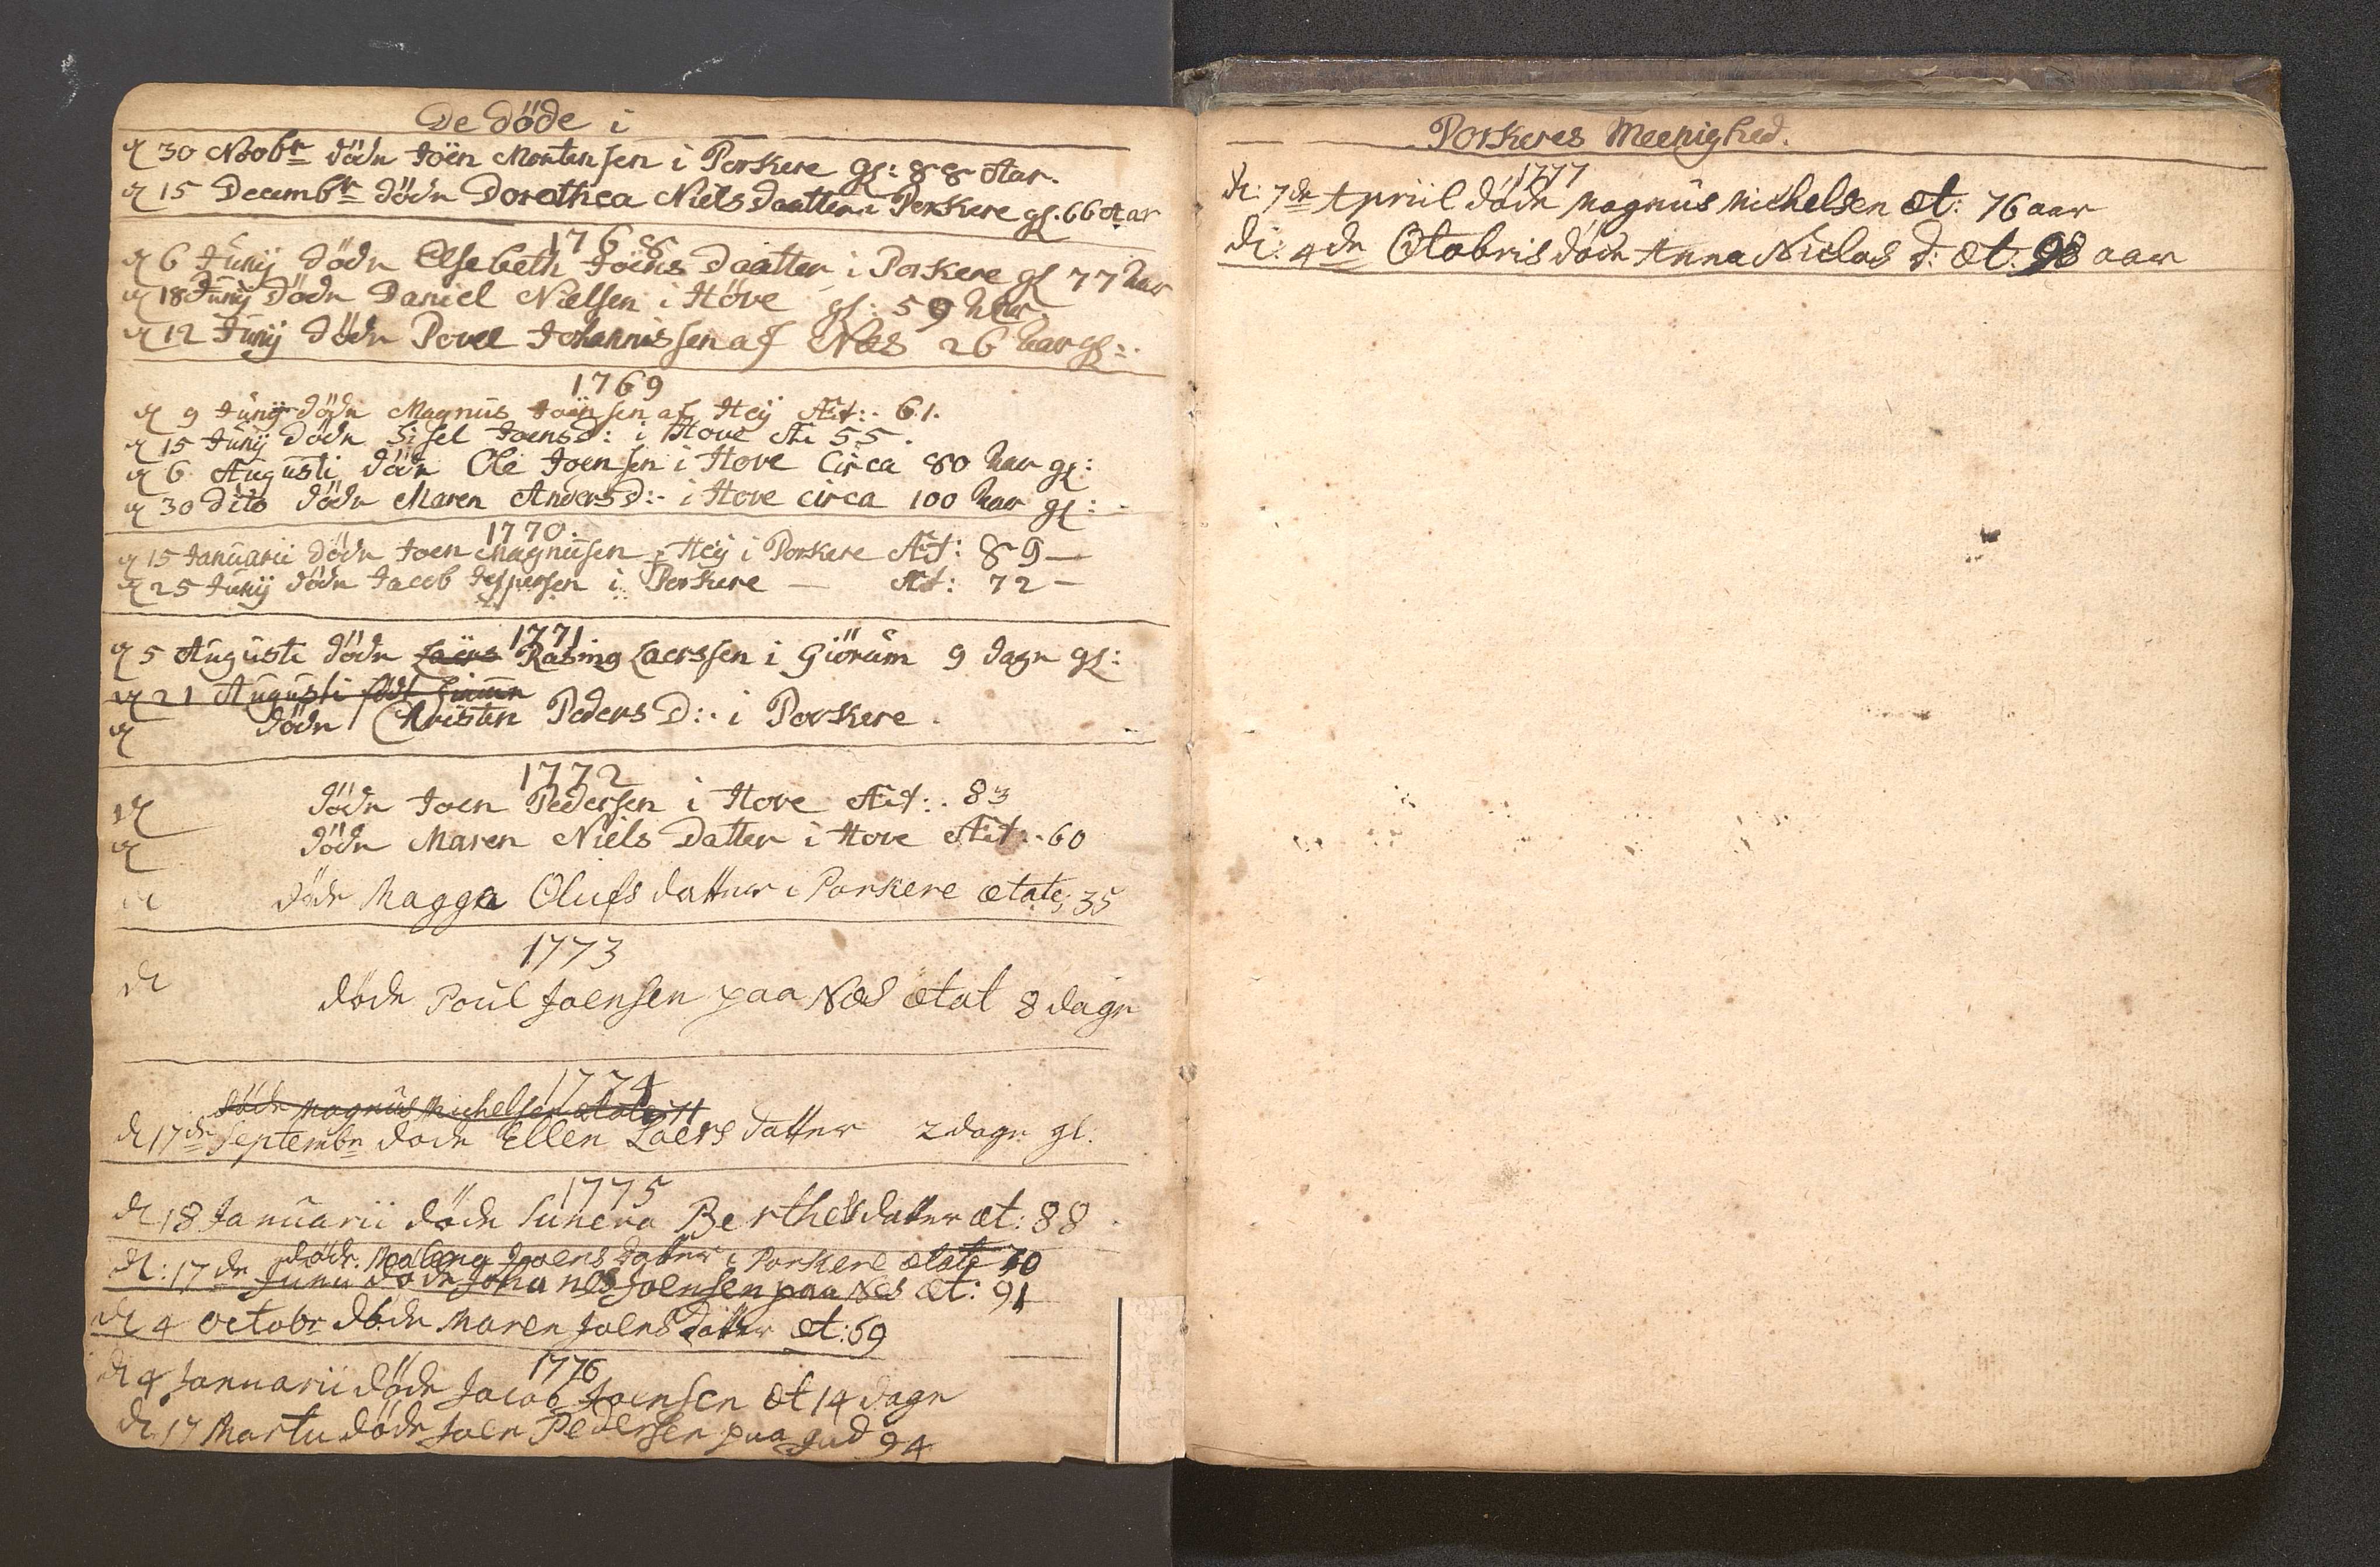 De döde i
d 30 Novbr döde Joën Mortensen i Porkere gl: 88 Aar.
d 15 Decembr döde Dorothea Niels Daatter i Porkere gl. 66 Aar
1768
d 6 Junij döde Elsebeth Joens Daatter i Porkere gl 77 Aar
d 18 Junij döde Daniel Nielsen i Höve gl: 59 Aar.
d 12 Junij döde Povel Johannissen af Næs 26 Aar gl:
1769
d 9 Junij döde Magnus Joensen af Heij Æt: 61.
d 15 Junij döde Sissel Joensd: i Hove Æt 55.
d 6 Augusti döde Ole Joensen i Hove Circa 80 Aar gl:
d 30 dito döde Maren Anders D: i Hove circa 100 Aar gl:
1770.
d 15 Januarii döde Joen Magnusen Heij i Porkere Æt: 89 —
d 25 Junij döde Jacob Jespersen i Porkere — Æt: 72 —
1771
d 5 Augusti döde Laers Rasmg Laerssen i Giörum 9 dage gl:
d 21 Augusti födt
d döde Christen Peders D: i Porkere.
1772
d döde Joen Pedersen i Hove Æt: 83
d döde Maren Niels Datter i Hove Æt: 60
d döde Magga Olufs datter i Porkere ætate 35
1773
d döde Poul Joensen paa Næs ætat 8 dage
1774
döde Magnus Michelsen ætate 71
d 17de Septembr døde Ellen Laers datter 2 dage gl.
1775
d 18 Januarii döde Suneva Berthels datter æt: 88
döde Malena Joens datter i Porkere ætate 30
d: 17de Junii døde Johanes Joensen paa Næs æt: 91
d 4 octobr døde Maren Joens datter æt: 69
1776
d 4 Januarii döde Jacob Joensen æt 14 dage
d 17 Martii döde Joen Pedersen paa 94
Porkeres Meenighed.
1777
d: 7de Apriil döde Magnus Michelsen æt: 76 aar
d: 4de Octobris döde Anna Niclas d: æt. 98 aar